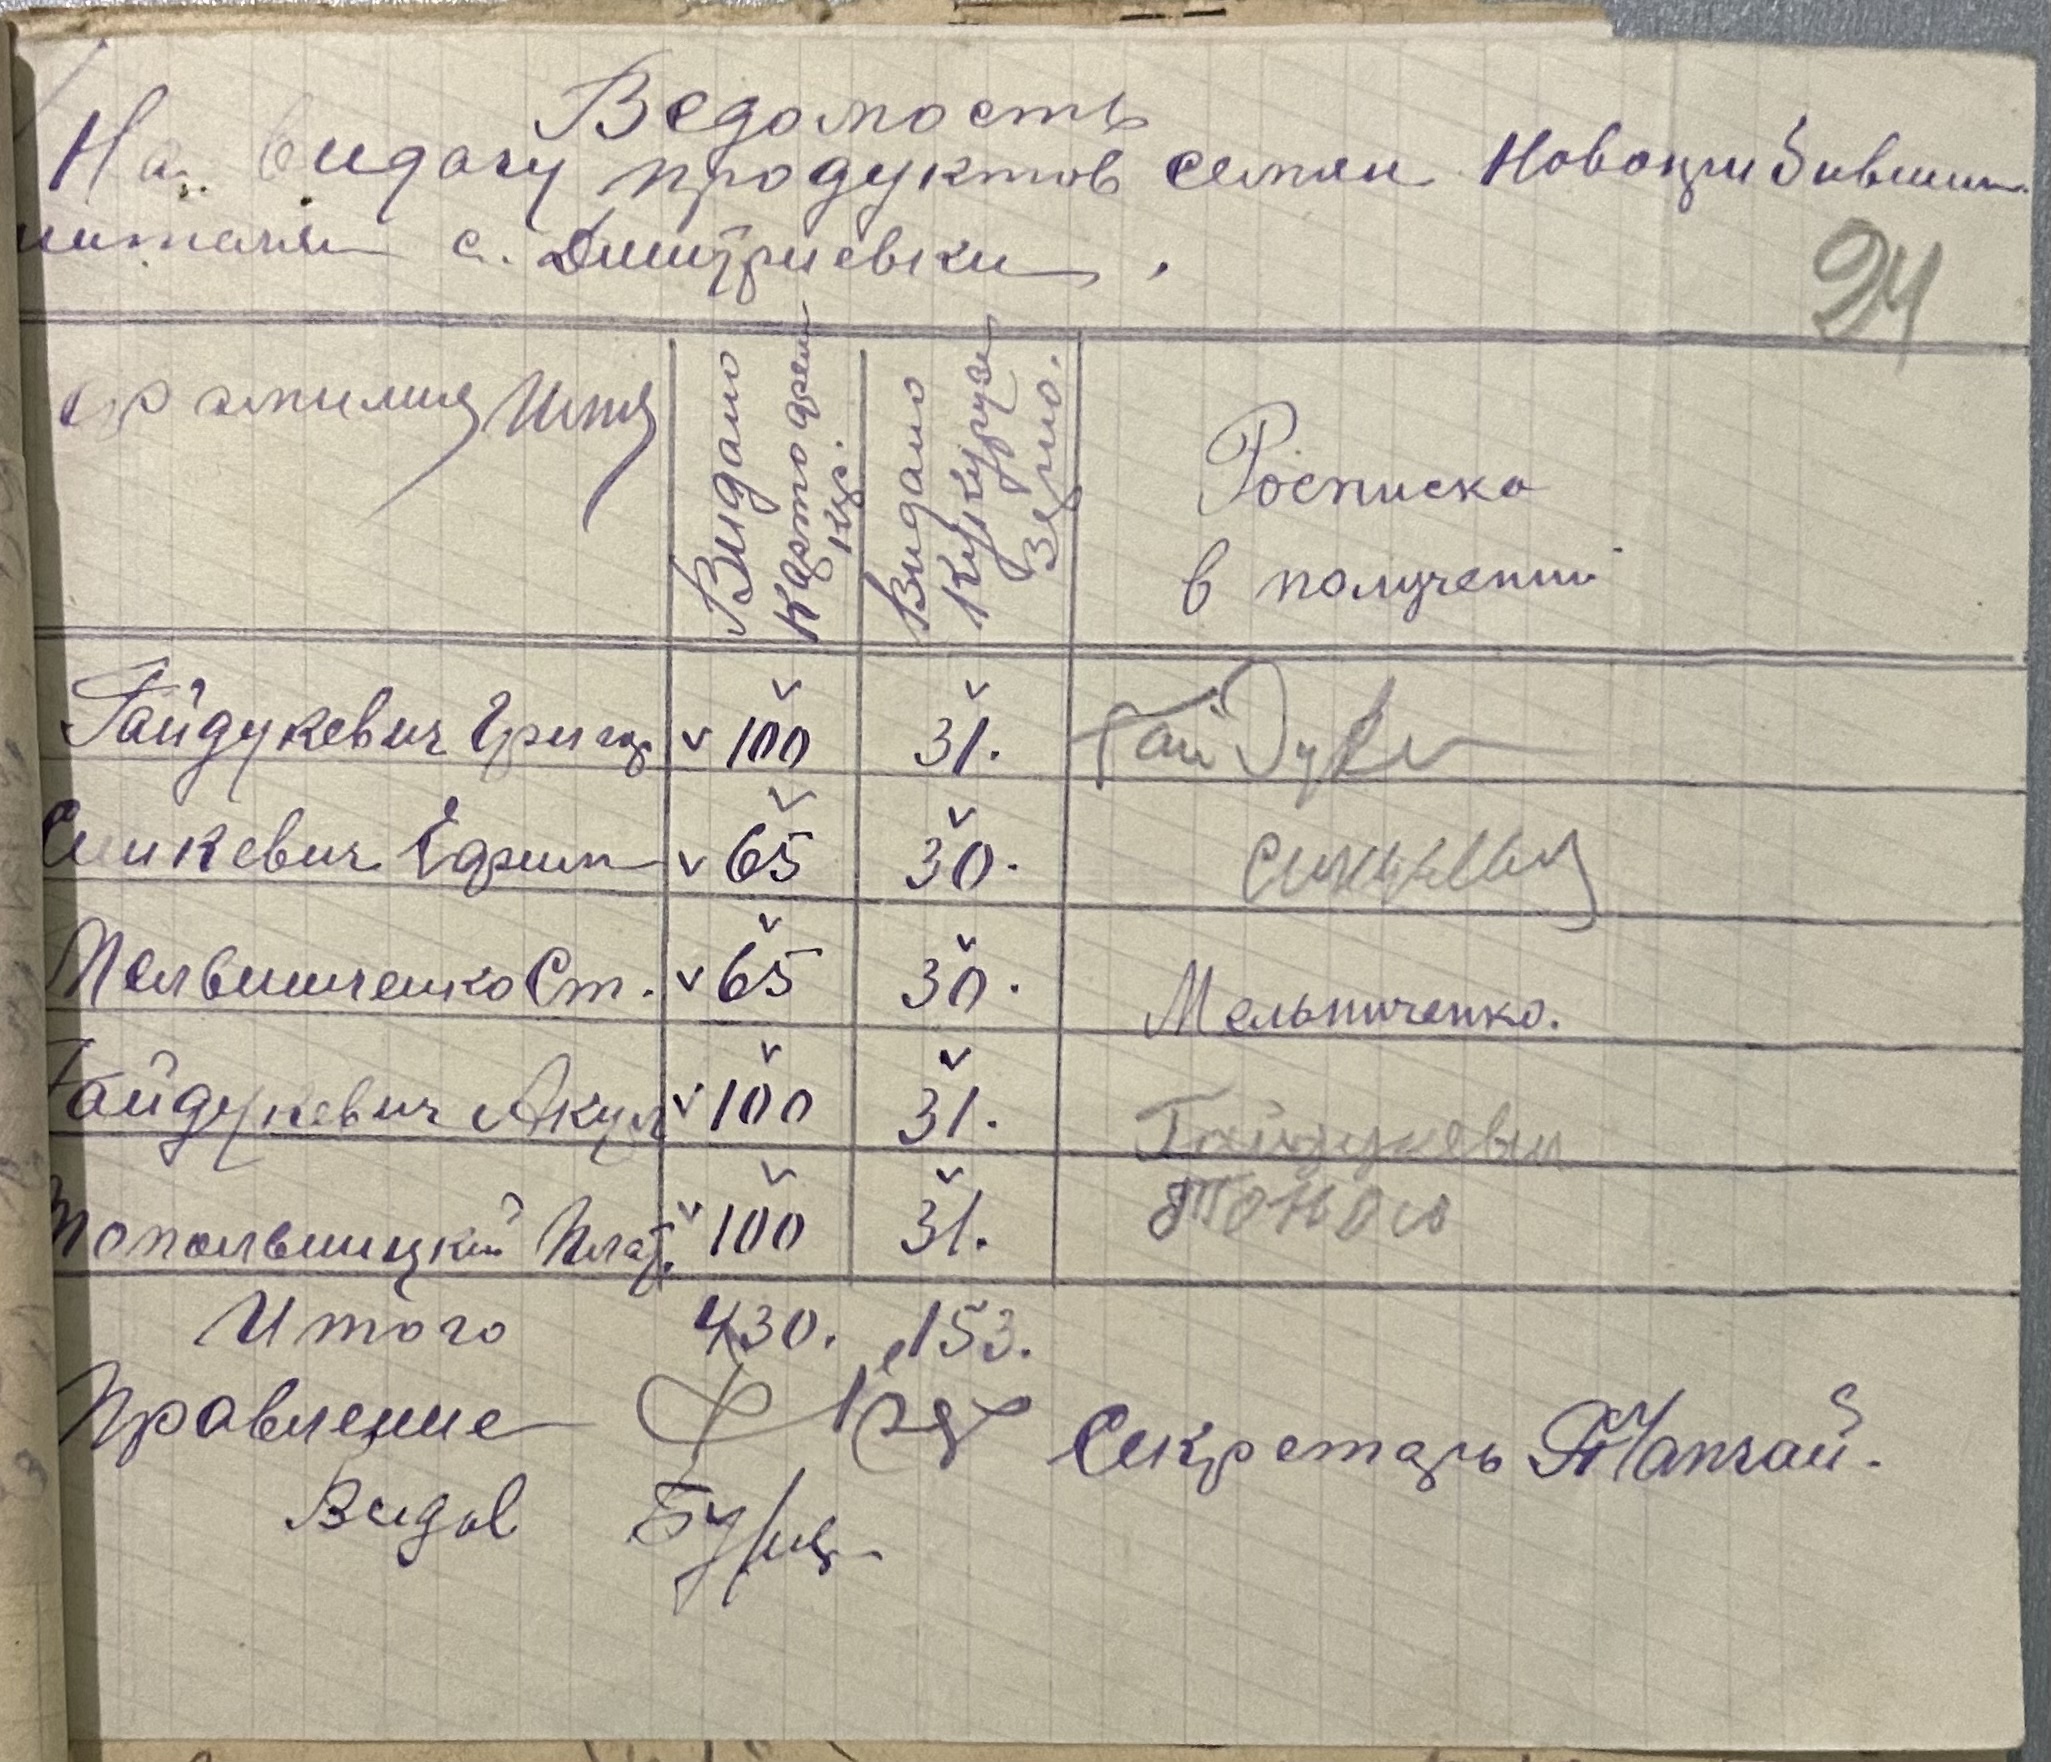 Ведомость
На видачу продуктов семян Новоприбившим
жителям с. Дмитриевки.
24
Фамилия Имя
Видано картофеля кг.
Видано Кукурузи Зерно.
Росписка
в получении
Гайдукевич Григор 100 31. Гайдуке
Синкевич Ефим 65 30.
Мельниченко Ст. 65 30. Мельниченко.
Гайдукевич Акул 100 31. Гайдукевич
Топольницкий Плат. 100 31.
Итого 430. 153.
Правление Секретарь
Видав